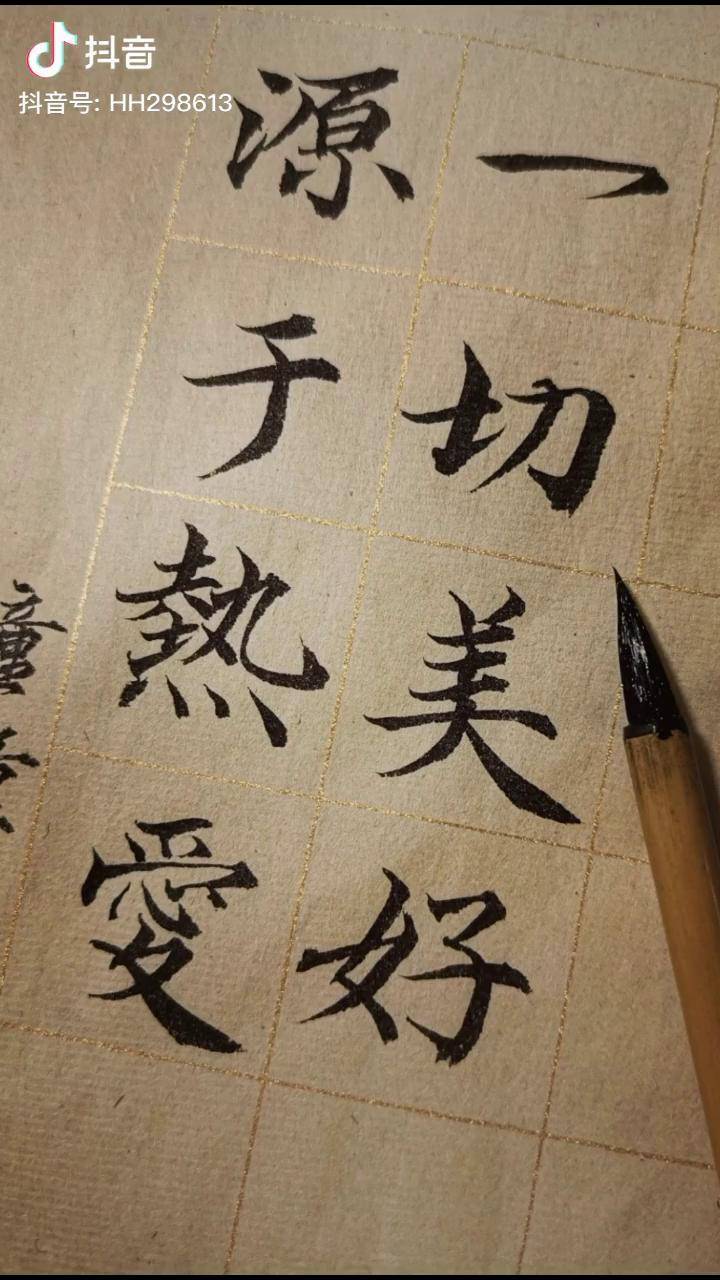 抖音
抖音号: HH298613
一切美好
源于热愛